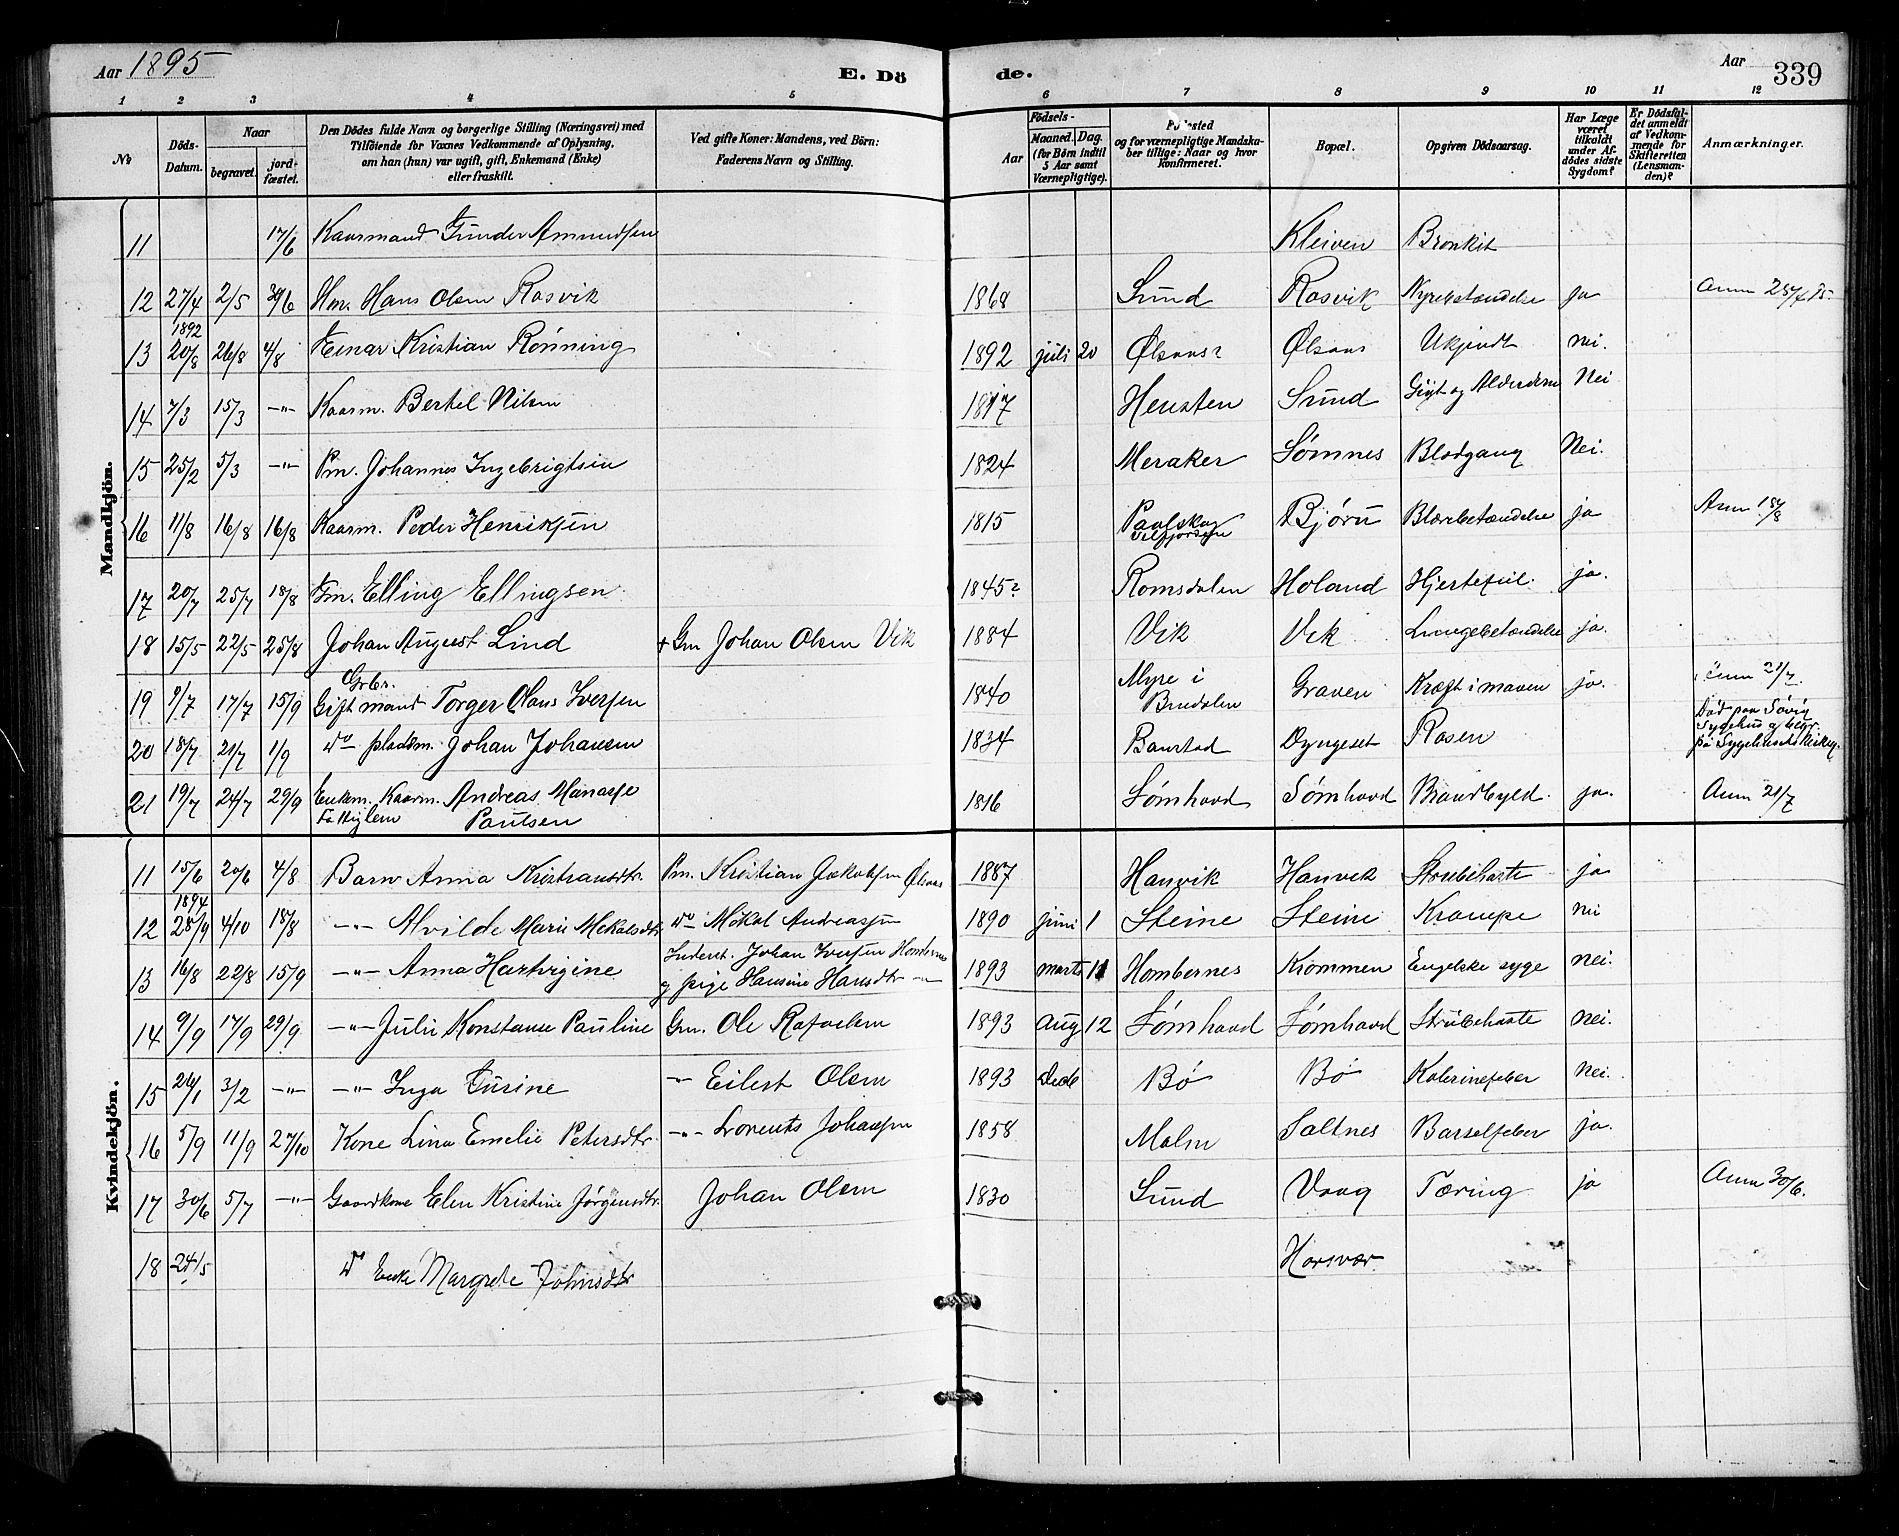 Aar 1895
E. Dö
de.
Aar
339
1 2 3 4 5 6 7 8 9 10 11 12
No
Döds-Datum.
Naar
begravet.
jord-fæstet.
Den Dödes fulde Navn og borgerlige Stilling (Næringsvei) med
Tilföiende for Voxnes Vedkommende af Oplysning,
om han (hun) var ugift, gift, Enkemand (Enke)
eller fraskilt.
Ved gifte Koner: Mandens, ved Börn:
Faderens Navn og Stilling.
Födsels-
Aar
Maaned. Dag.
(for Börn indtil
5 Aar samt
Værnepligtige).
Födested
og for værnepligtige Mandska-
ber tillige: Naar og hvor
Konfirmeret.
Bopæl.
Opgiven Dödsaarsag.
Har Læge
været
tilkaldt
under Af-
dödes sidste
Sygdom?
Er Dödsfal-
det anmeldt
af Vedkom-
mende for
Skifteretten
(Lensman-
den)?
Anmærkninger.
Mandkjön.
11 17/6 Kaarmand Gunder Amundsen Kleiven Bronkit
12 27/4 2/5 30/6 Hans Olsen Rosvik 1868 Sund Rosvik Nyrebetændelse ja
13 1892 20/8 26/8 4/8 Einar Kristian Rønning 1892 juli 20 Ølsaas? Ølsaas Ukjendt nei.
14 7/3 15/3 -"- Kaarm. Bertel Nilsen 1817 Hensten Sund Gigt og Alderdom Nei
15 25/2 5/3 -"- Pm. Johannes Ingebrigtsen 1824 Meraker Sømnes Blodgang Nei.
16 11/8 16/8 16/8 Kaarm. Peder Henriksen 1815 Bjøru Blærebetændelse ja Anm 18/8
17 20/7 25/7 18/8 Elling Ellingsen 1845? Romsdalen Holand Hjertefeil. ja.
18 15/5 22/5 25/8 Johan August Lind + Gm Johan Olsen Vik 1884 Vik Vik Lungebetændelse ja.
19 9/7 17/7 15/9 Gbr. Gift mand Torger Olaus Iversen 1840 Myre i Bindalen Graven Kræft i maven ja. Anm 21/7.
20 18/7 21/7 1/9 do pladsm. Johan Johansen 1834 Baustad Dyngeset Rosen Död paa Søvig Sygehus og begr. på Sygehusets kirkeg.
21 19/7 24/7 29/9 Enkem. Kaarm. Andreas Manasse
Fattiglem Paulsen 1816 Sømhovd Sømhovd Brandbyld. ja. Anm 21/7
Kvindekjön.
11 15/6 20/6 4/8 Barn Anna Kristiansdtr. Pm. Kristian Jakobsen Ølsaas 1887 Hanvik Hanvik Strubehoste ja
12 1894 28/9 4/10 18/8 -"- Alvilde Marie Mekalsdtr do Mekal Andreassen 1890 juni 1 Steine Steine Krampe nei
13 16/8 22/8 15/9 -"- Anna Hartvigine Inderst. Johan Iversen Hombernes
og pige Hansine Hansdtr -"- 1893 marts 11 Hombernes Krommen Engelske syge nei.
14 9/9 17/9 29/9 -"- Julie Konstanse Pauline Gm. Ole Rafaelsen 1893 Aug 12 Sømhovd Sømhovd Strubehoste nei.
15 26/1 3/2 -"- -"- Inga Tusine -"- Eilert Olsen 1893 Bø Bø Kolerinefeber nei.
16 5/9 11/9 27/10 Kone Lina Emelie Petersdtr. -"- Lorents Johansen 1858 Malm Saltnes Barselfeber ja.
17 30/6 5/7 -"- Gaardkone Elen Kristine Jørgensdtr. Johan Olsen 1830 Sund Vaag Tæring ja Anm 30/6.
18 24/5 do Enke Margrete Johnsdtr Horsvær